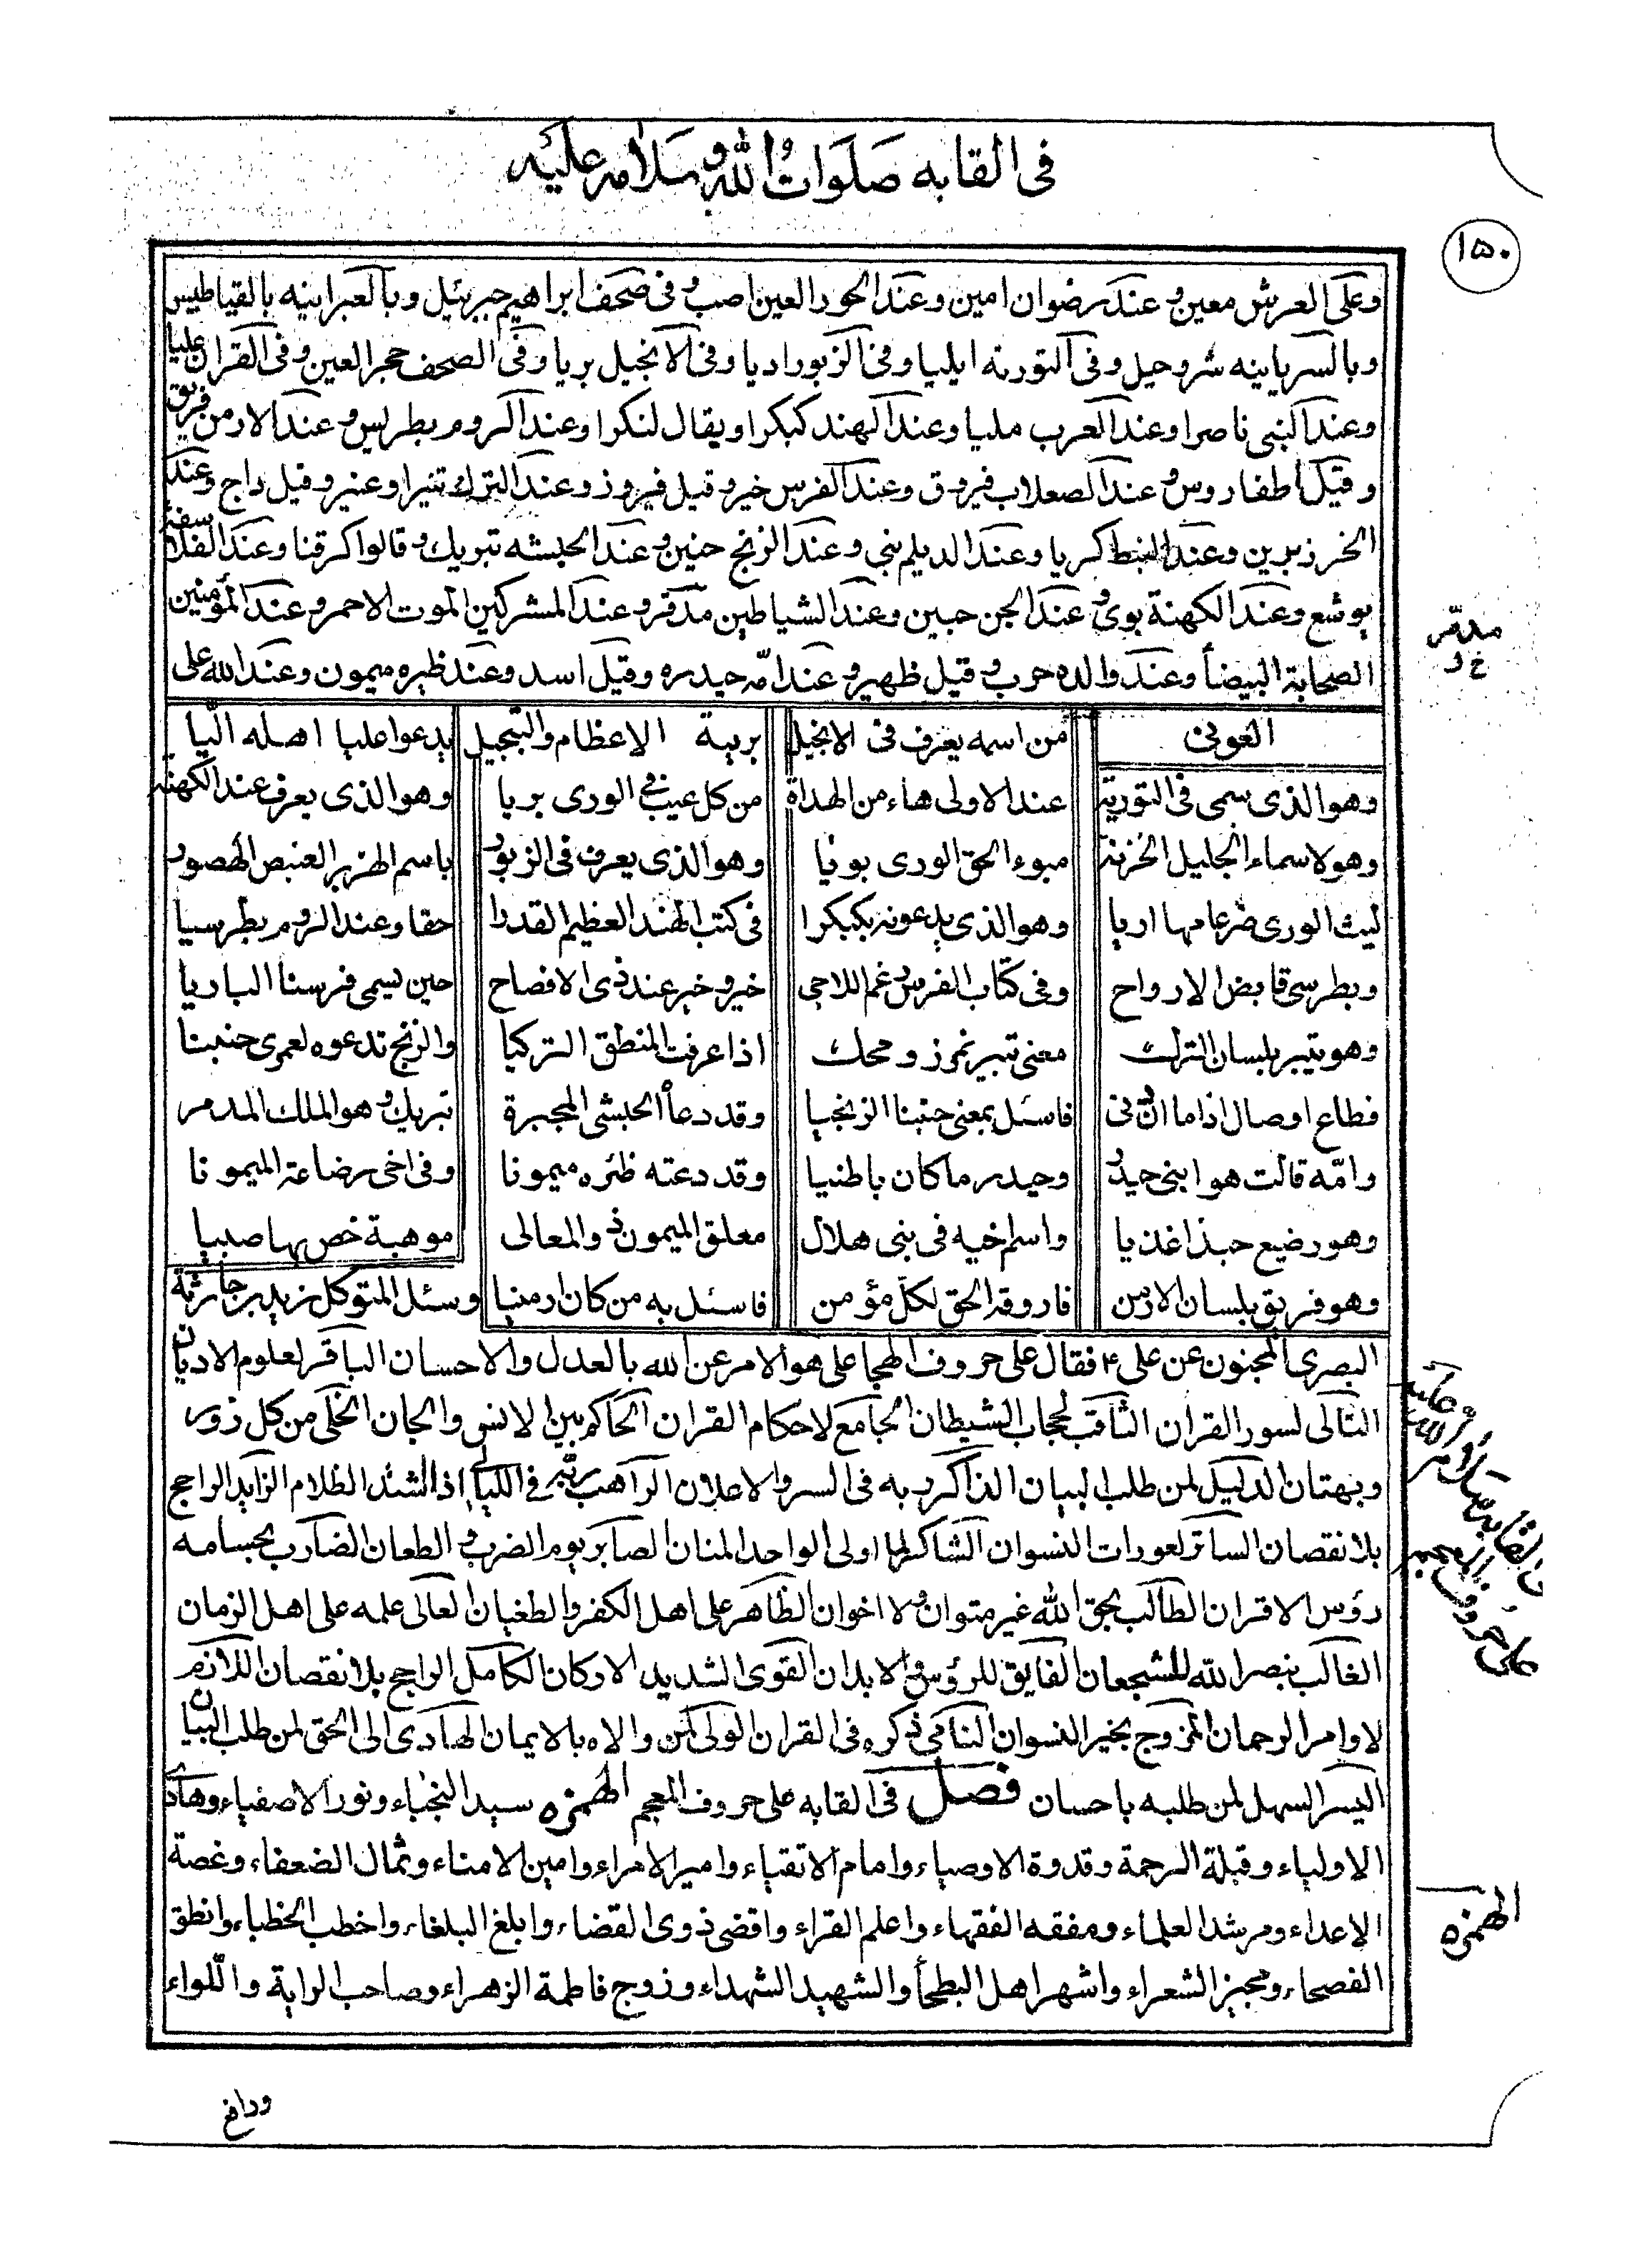 فى القابه صَلَوَاتُ اللّٰه وسَلامه عليَه
١٥٠
وعلى العرش معين وعند رضوان امين وعند الحور العين اصب وفى صحف ابراهيم جبرئيل وبالعبرانيه بالقياطيس
وبالسريانيه شروحيل وفى التورية ايليا وفى الزبور اديا وفى الانجيل بريا وفى الصحف حجر العين وفى القران عليا
وعند النبى ناصرا وعند العرب مليا وعند الهند كبكرا ويقال لنكرا وعند الروم بطريس وعند الارمن فريق
وقيل اطفاروس وعند الصعلاب فيروق وعند الفرس خير وقيل فيروز وعند الترك تنيرا وعنير وقيل راج وعند
الخرز برين وعند النبط كريا وعند الديلم بنى وعند الزنج حنين وعند الحبشه تبريك وقالوا كرقنا وعند الفلاسفة
يوشع وعند الكهنة بوى وعند الجن حبين وعند الشياطين مدمر وعند المشركين الموت الاحمر وعند المؤمنين
مدمّر
خ د
الصحابة البيضأ وعند والده حرب وقيل ظهير وعند امّه حيدره وقيل اسد وعند ظيره ميمون وعند الله على
العونى من اسمه يعرف فى الانجيل برية الاعظام والتبجيل يدعوا عليا اهله اليّا
وهو الذى سمى فى التورية عند الاولى هاء من الهداة من كل عيب فى الورى بريا وهو الذى يعرف عند الكهنة
وهو لاسماء الجليل الخزنة مبوء الحق الورى بويا وهو الذى يعرف فى الزبور باسم الهزبر العنبص الهصور
ليث الورى ضرغامها اريا وهو الذى يدعونه بكبكرا فى كتب الهند العظيم القدرا حقا وعند الروم بطرسيا
وبطرسى قابض الارواح وفى كتاب الفرس رغم اللاحى خير وخير عند ذى الافصاح حين يسمى فرسنا الباريا
وهو تبير بلسان الترك معنى تبير نمرز ومحك اذا عرفت المنطق التركيا والزنج تدعوه لعمرى حنبنا
قطاع اوصال اذا ما ان دنى فاسئل بمعنى حنبنا الزنجيا وقد دعأ الحبشى المجبرة تبريك وهو الملك المدمر
وامّه قالت هو ابنى حيدر وحيدر ما كان باطنيا وقد دعته ظئره ميمونا وفى اخى رضاعة الميمونا
وهو رضيع حبذا غذيا واسم اخيه فى بنى هلال معلق الميمون ذو المعالى موهبة خص بها صبيا
وهو فريق بلسان الارمن فاروقة الحق لكلّ مؤمن فاسئل به من كان ارمنيا وسئل المتوكل زيد بن حارثة
البصرى المجنون عن على ٤ فقال على حروف الهجا على هو الامر عن الله بالعدل والاحسان الباقر لعلوم الاديان
التالى لسور القران الثاقب لحجاب الشيطان الجامع لاحكام القران الحاكم بين الانس والجان الخلى من كل زور
وبهتان الدليل لمن طلب البيان الذاكر ربه فى السر والاعلان الراهب ربّه فى الليالى اذا اشتد الظلام الزايد الراجح
بلا نقصان الساتر لعورات النسوان الشاكر لما اولى الواحد المنان الصابر يوم الضرب والطعان الضارب بحسامه
رؤس الاقران الطالب بحق الله غير متوان ولا اخوان الظاهر على اهل الكفر والطغيان العالى علمه على اهل الزمان
الغالب بنصر الله للشجعان الفايق للرؤس والابدان القوى الشديد الاركان الكامل الراجح بلا نقصان اللازم
لاوامر الرحمان المزوج بخير النسوان النامى ذكره فى القران الولى لمن والاه بالايمان الهادى الى الحق لمن طلب البيان
اليسر السهل لمن طلبه باحسان فصل فى القابه على حروف المعجم الهمزه سيد النجباء ونور الاصفياء وهادى
الاولياء وقبلة الرحمة وقدوة الاوصياء وامام الاتقياء وامير الامراء وامين الامناء وثمال الضعفاء وغصة
الهمزه
الاعداء ومرشد العلماء ومفقه الفقهاء واعلم القراء واقضى ذوى القضاء وابلغ البلغاء واخطب الخطباء وانطق
الفصحاء ومجيز الشعراء واشهر اهل البطحأ والشهيد الشهداء وزوج فاطمة الزهراء وصاحب الراية واللواء
ودافع